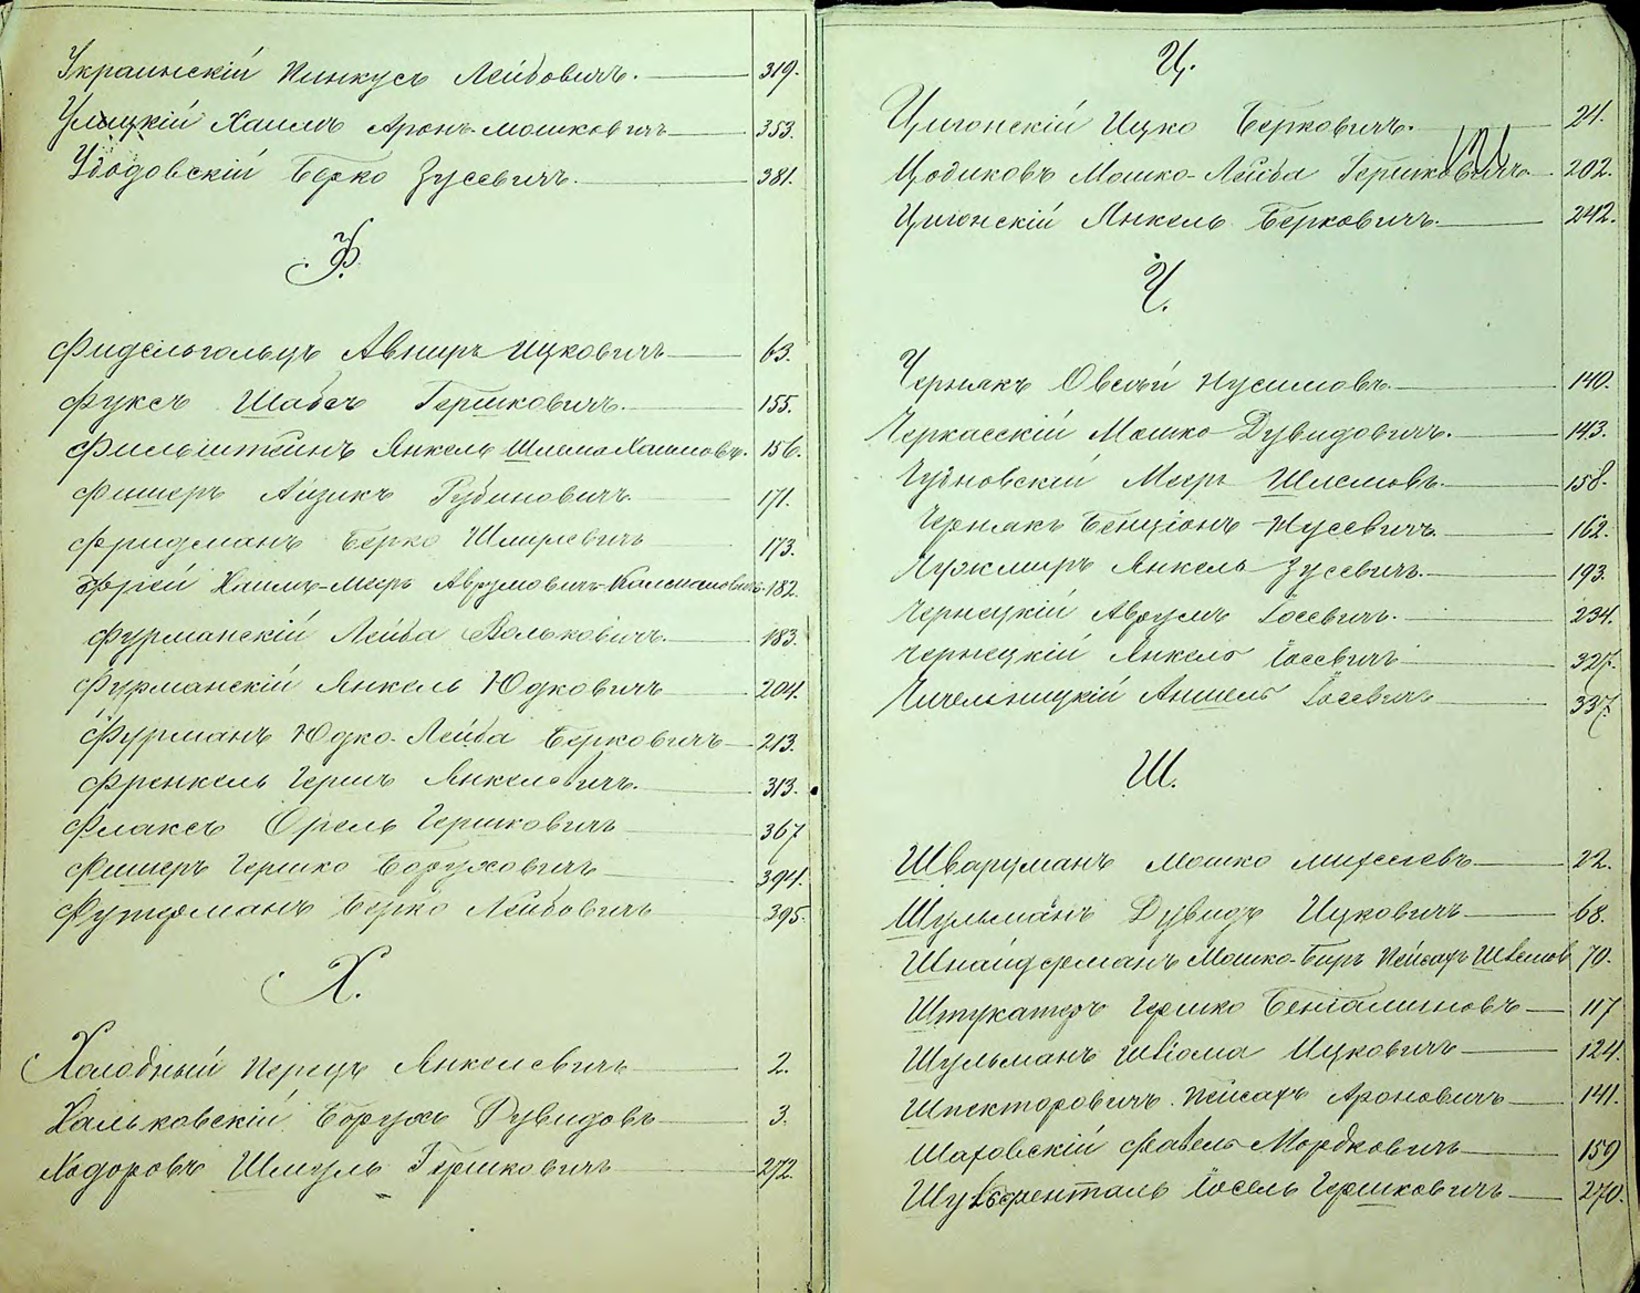 Украинскій Пинкусъ Лейбовичъ. 319.
Улицкій Хаимъ Аронъ-Мошковичъ 353.
Уводовскій Берко Зусевичъ. 381.
Ф.
Фидельгольцъ Авнеръ Ицковичъ 63.
Фуксъ Шабсъ Гершковичъ. 155.
Фильштейнъ Янкель Шлема Хаимовъ. 156.
Фишеръ Айзикъ Рубиновичъ 171.
Фридманъ Берко Шмулевичъ 173.
Фрей Хаимъ-Мееръ Аврумовичъ-Калмановичъ 182.
Фурманскій Лейба Вольковичъ. 183.
Фурманскій Янкель Юдковичъ 204.
Фурманъ Юдко-Лейба Берковичъ 213.
Френкель Гершъ Янкелевичъ. 313.
Флаксъ Орель Гершковичъ 367
Фишеръ Гершко Боруховичъ 394.
Футерманъ Берко Лейбовичъ 395.
Х.
Холодный Перецъ Янкелевичъ 2.
Хальковскій Борухъ Дувидовъ 3.
Ходоровъ Шмуль Гершковичъ 272.
Ц.
Цигонскій Ицко Берковичъ. 24.
Цодиковъ Мошко-Лейба Гершковичъ 202.
Цигонскій Янкель Берковичъ. 242.
Ч.
Чернякъ Овсей Нусимовъ. 140.
Черкасскій Мошко Дувидовичъ. 143.
Чудновскій Мееръ Шлемовъ. 158.
Чернякъ Бенціонъ Нусевичъ. 162.
Чужмиръ Янкель Зусевичъ. 193.
Чернецкій Аврумъ Іосевичъ. 234.
Чернецкій Янкель Іосевичъ 327.
Чичельницкій Аншель Іосевичъ 337.
Ш.
Шварцманъ Мошко 22.
Шульманъ Дувидъ Ицковичъ 68.
Шнайдерманъ Мошко-Беръ Пейсахъ Шлемов 70.
Штукатеръ Гершко Беніаминовъ 117
Шульманъ Шлома Ицковичъ 124.
Шпекторовичъ Пейсахъ Ароновичъ 141.
Шаховскій Фавель Мордковичъ 159
Гершковичъ 270.